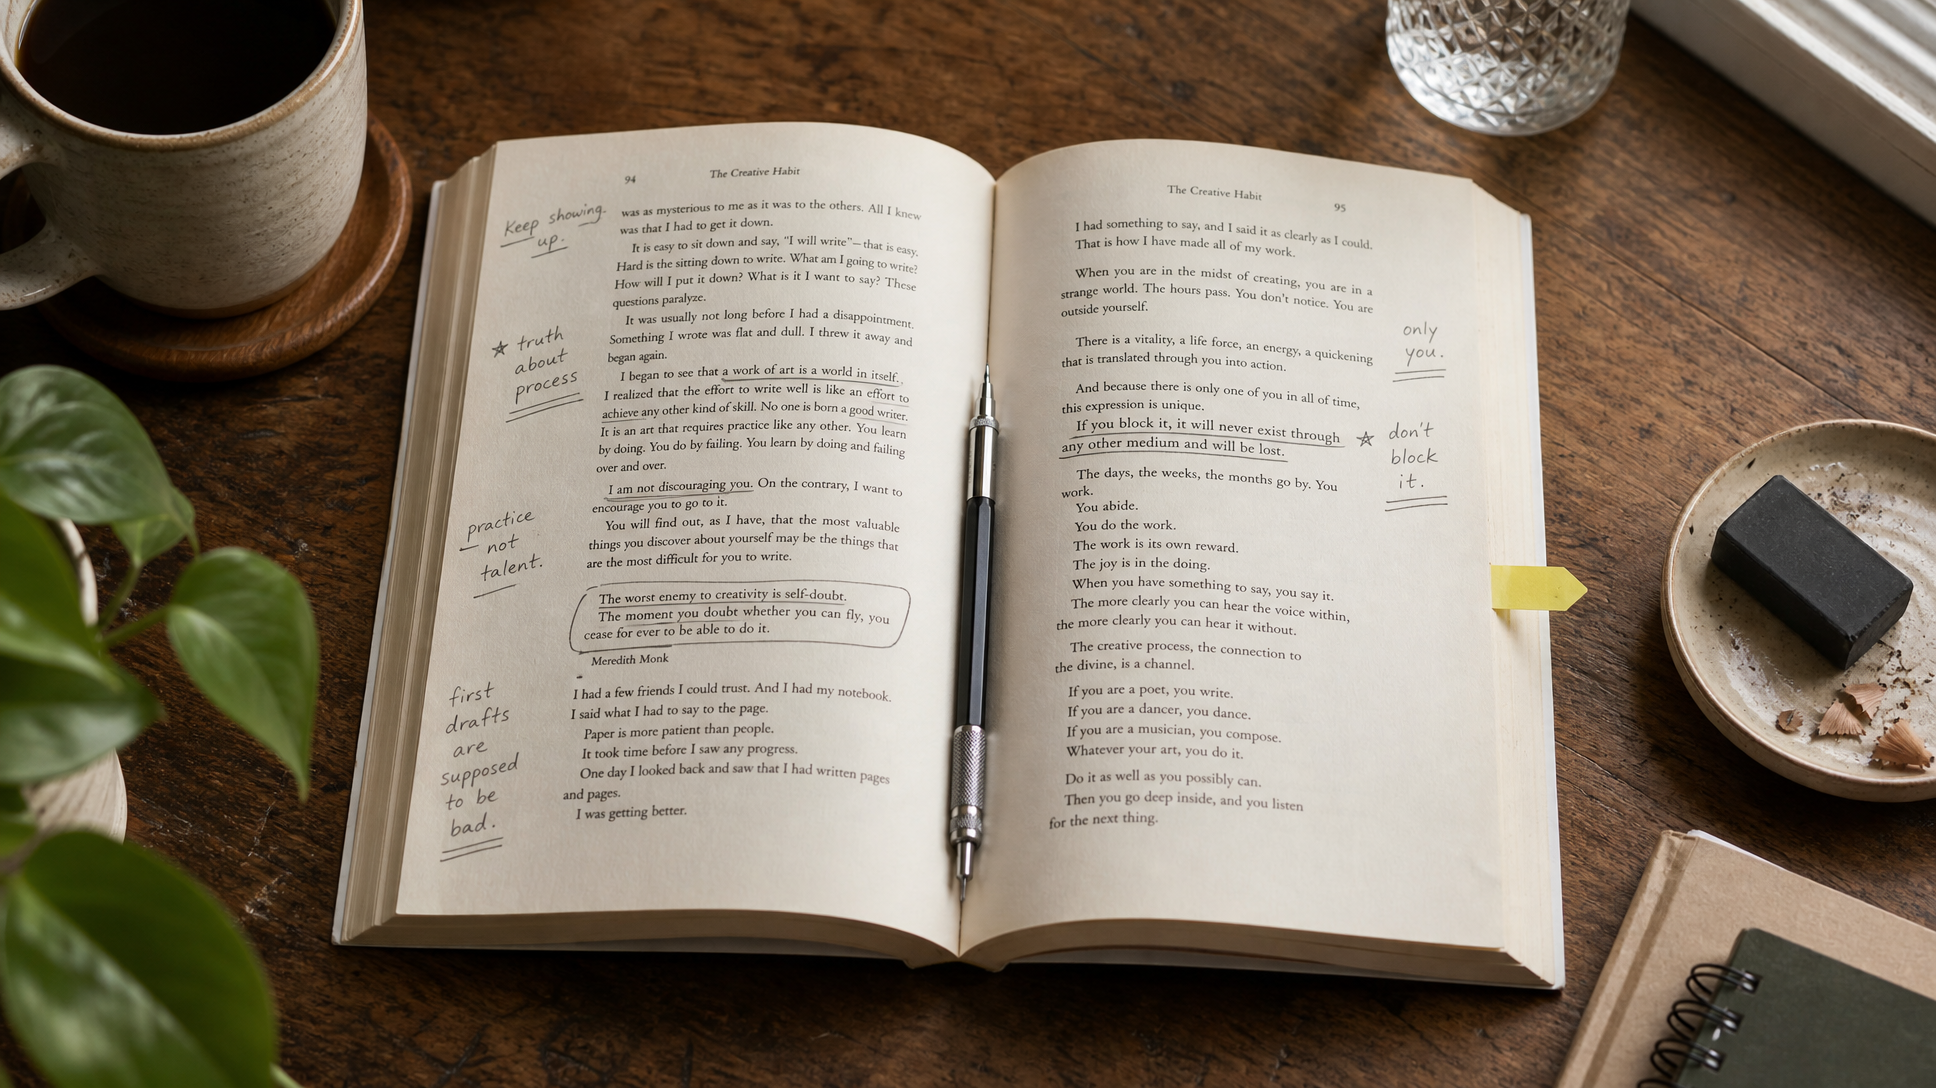 94
The Creative Habit
Keep showing
up.
was as mysterious to me as it was to the others. All I knew
was that I had to get it down.
It is easy to sit down and say, "I will write"—that is easy.
Hard is the sitting down to write. What am I going to write?
How will I put it down? What is it I want to say? These
questions paralyze.
It was usually not long before I had a disappointment.
Something I wrote was flat and dull. I threw it away and
began again.
☆ truth
about
process
I began to see that a work of art is a world in itself.
I realized that the effort to write well is like an effort to
achieve any other kind of skill. No one is born a good writer.
It is an art that requires practice like any other. You learn
by doing. You do by failing. You learn by doing and failing
over and over.
I am not discouraging you. On the contrary, I want to
encourage you to go to it.
practice
not
talent.
You will find out, as I have, that the most valuable
things you discover about yourself may be the things that
are the most difficult for you to write.
The worst enemy to creativity is self-doubt.
The moment you doubt whether you can fly, you
cease for ever to be able to do it.
Meredith Monk
first
drafts
are
supposed
to be
bad.
I had a few friends I could trust. And I had my notebook.
I said what I had to say to the page.
Paper is more patient than people.
It took time before I saw any progress.
One day I looked back and saw that I had written pages
and pages.
I was getting better.
The Creative Habit
95
I had something to say, and I said it as clearly as I could.
That is how I have made all of my work.
When you are in the midst of creating, you are in a
strange world. The hours pass. You don't notice. You are
outside yourself.
There is a vitality, a life force, an energy, a quickening
that is translated through you into action.
only
you.
And because there is only one of you in all of time,
this expression is unique.
If you block it, it will never exist through
any other medium and will be lost.
☆ don't
block
it.
The days, the weeks, the months go by. You
work.
You abide.
You do the work.
The work is its own reward.
The joy is in the doing.
When you have something to say, you say it.
The more clearly you can hear the voice within,
the more clearly you can hear it without.
The creative process, the connection to
the divine, is a channel.
If you are a poet, you write.
If you are a dancer, you dance.
If you are a musician, you compose.
Whatever your art, you do it.
Do it as well as you possibly can.
Then you go deep inside, and you listen
for the next thing.